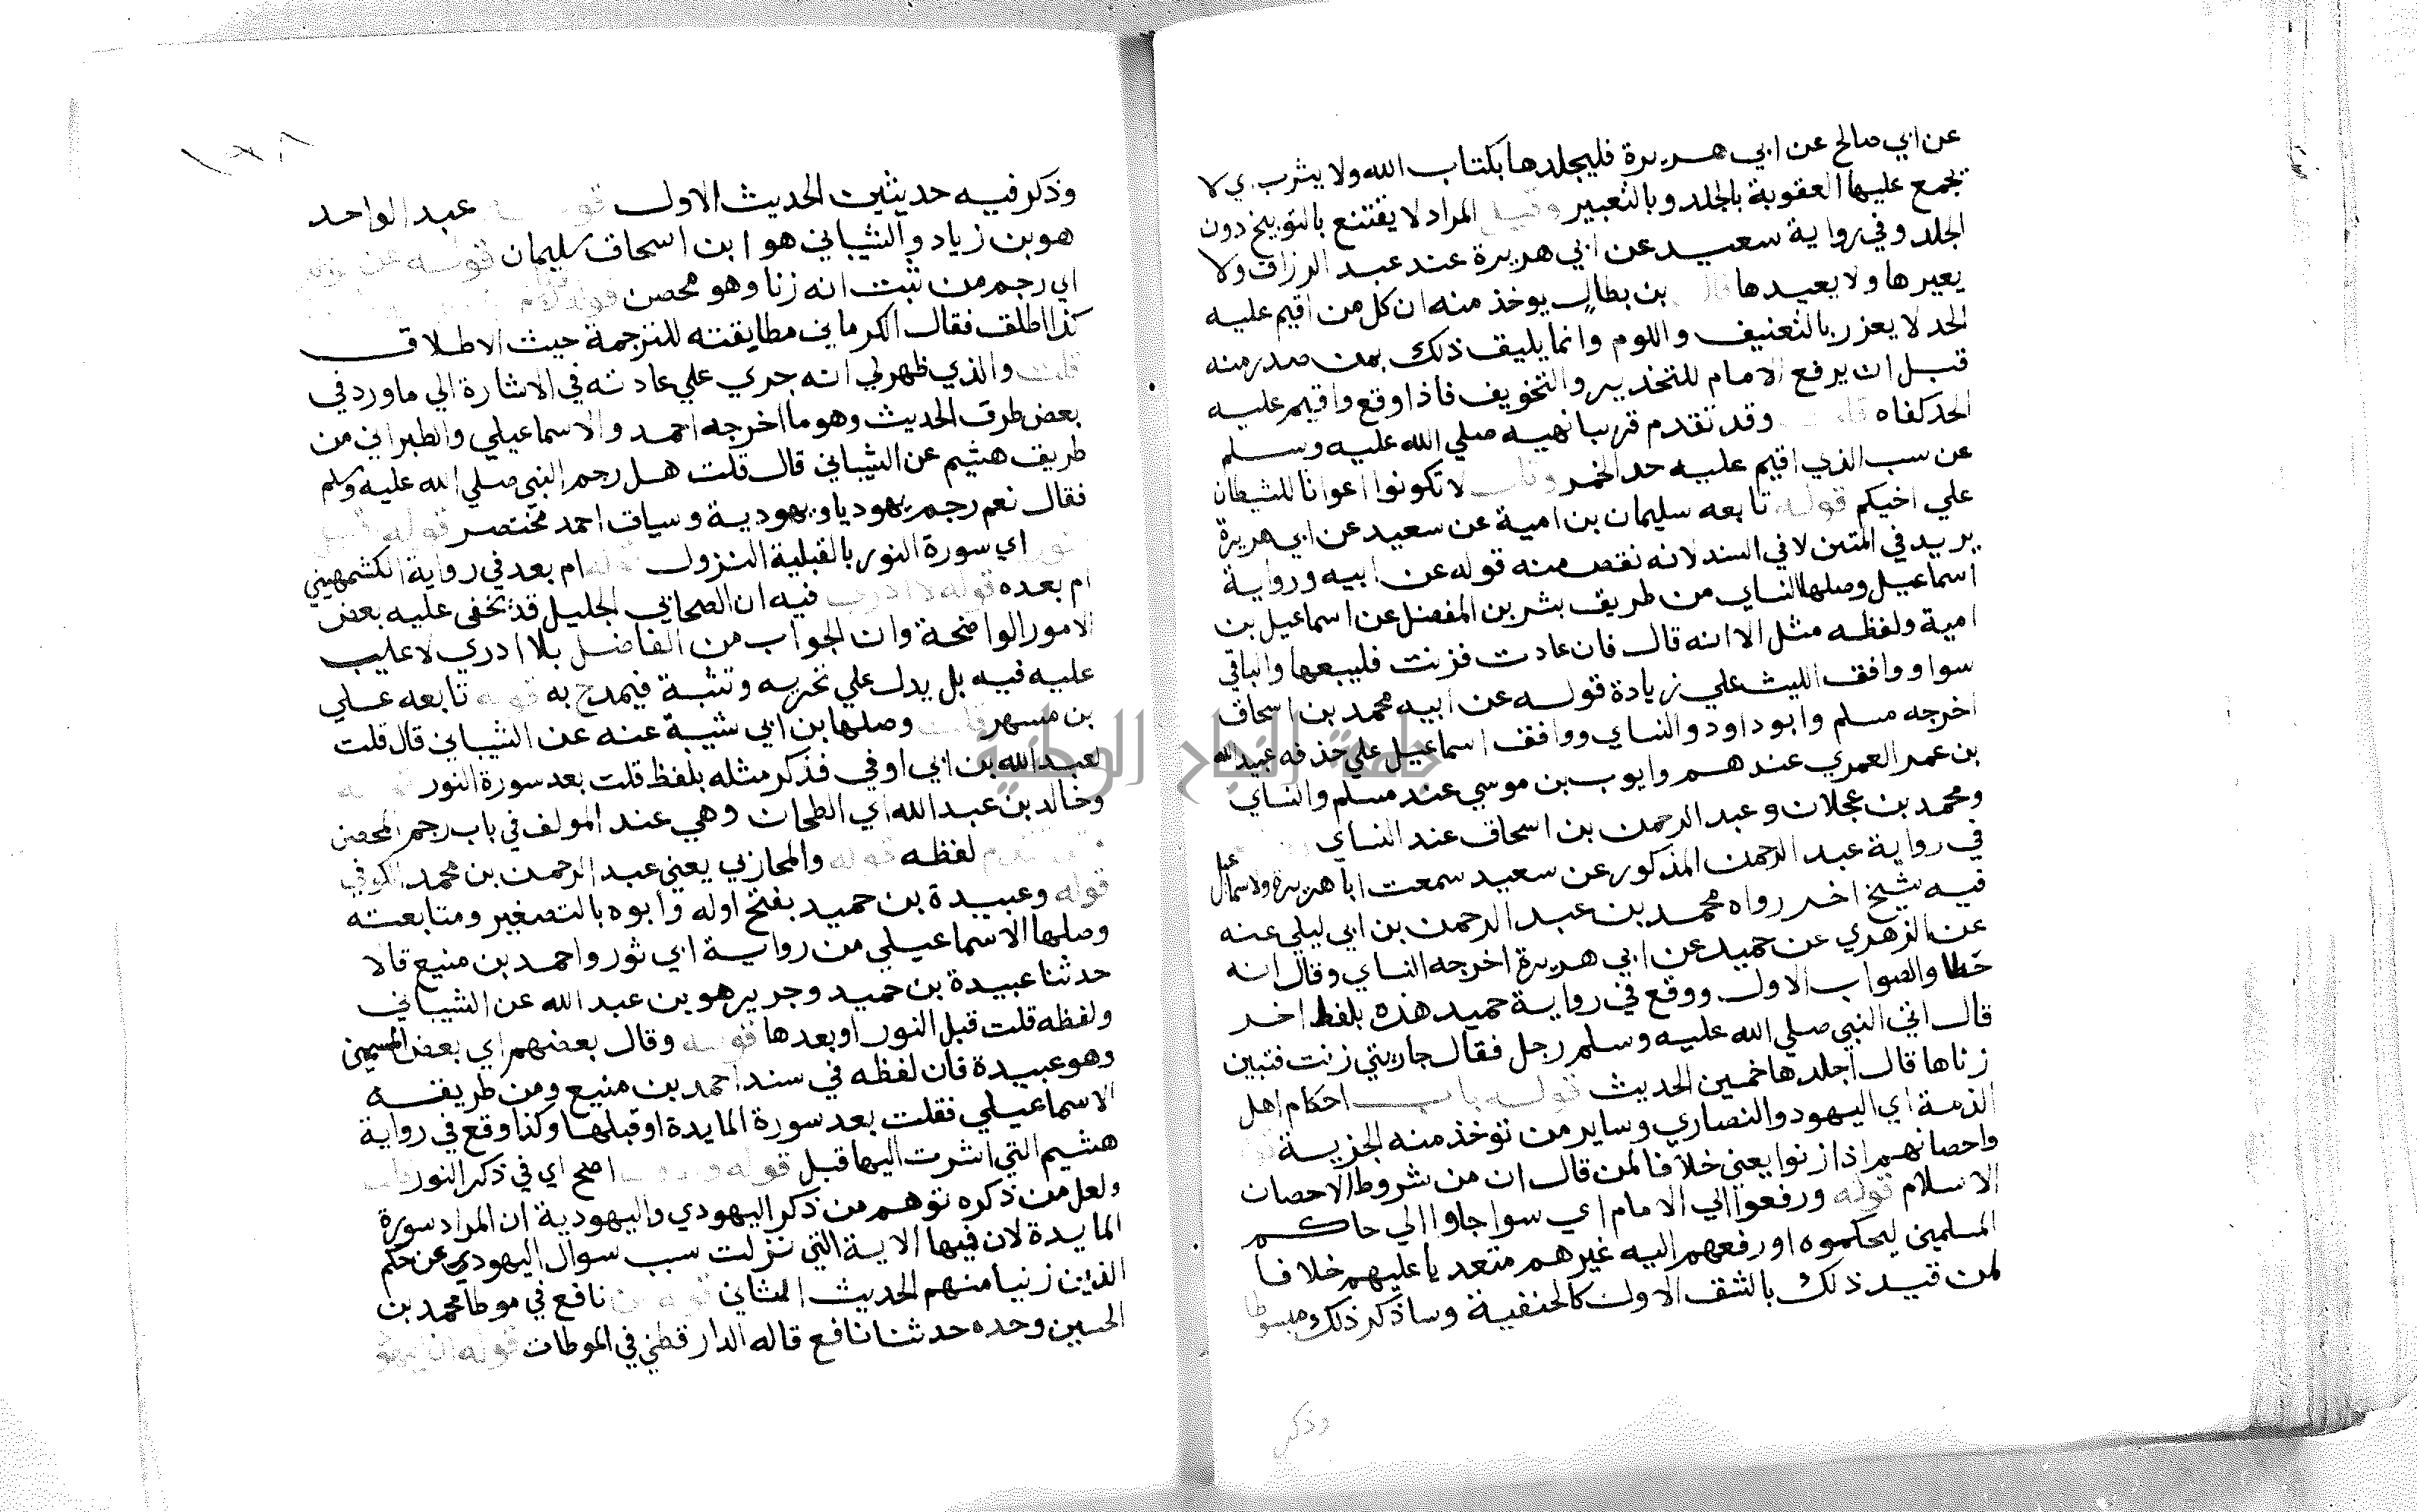 عن ابي صالح عن ابي هريرة فليجلدها بكتاب الله ولا يثرب اي لا
يجمع عليها العقوبة بالجلد وبالتعيير وقيل المراد لا يقتنع بالتوبيخ دون
الجلد وفي رواية سعيد عن ابي هريرة عند عبد الرزاق ولا
يعيرها ولا يعيدها قال بن بطال يوخذ منه ان كل من اقيم عليه
الحد لا يعزر بالتعنيف واللوم وانما يليق ذلك بمن صدر منه
قبل ان يرفع الامام للتحذير والتخويف فاذا وقع واقيم عليه
الحد كفاه قلت وقد تقدم قريبا نهيه صلي الله عليه وسلم
عن سب الذي اقيم عليه حد الخمر وقال لا تكونوا اعوانا للشيطان
علي اخيكم قوله تابعه سليمان بن امية عن سعيد عن ابي هريرة
يريد في المتن لا في السند لانه نقص منه قوله عن ابيه ورواية
اسماعيل وصلها النساي من طريق بشر بن المفضل عن اسماعيل بن
امية ولفظه مثل الا انه قال فان عادت فزنت فليبعها والباقي
سوا ووافق الليث علي زيادة قوله عن ابيه محمد بن اسحاق
اخرجه مسلم وابو داود والنساي ووافق اسماعيل علي حذفه عبيد الله
بن عمر العمري عندهم وايوب بن موسي عند مسلم والنساي
ومحمد بن عجلان وعبد الرحمن بن اسحاق عند النساي
في رواية عبد الرحمن المذكور عن سعيد سمعت ابا هريرة ولاسماعيل
فيه شيخ اخر رواه محمد بن عبد الرحمن بن ابي ليلي عنه
عن الزهري عن حميد عن ابي هريرة اخرجه النساي وقال انه
خطا والصواب الاول ووقع في رواية حميد هذه بلفظ اخر
قال اتي النبي صلي الله عليه وسلم رجل فقال جاريتي زنت فتبين
زناها قال اجلدها خمسين الحديث قوله باب احكام اهل
الذمة اي اليهود والنصاري وساير من توخذ منه الجزية
واحصانهم اذا زنوا يعني خلافا لمن قال ان من شروط الاحصان
الاسلام قوله ورفعوا الي الامام اي سوا جاوا الي حاكم
المسلمين ليحكموه او رفعهم اليه غيرهم متعديا عليهم خلافا
لمن قيد ذلك بالشق الاول كالحنفية وساذكر ذلك مبسوطا
وذكر
١٣٨
وذكر فيه حديثين الحديث الاول قوله عبد الواحد
هو بن زياد والشيباني هو ابن اسحاق سليمان قوله عن
اي رجم من ثبت انه زنا وهو محصن قوله
كذا اطلق فقال الكرماني مطابقته للترجمة حيث الاطلاق
قلت والذي ظهر لي انه جري علي عادته في الاشارة الي ما ورد في
بعض طرق الحديث وهو ما اخرجه احمد والاسماعيلي والطبراني من
طريق هشيم عن الشيباني قال قلت هل رجم النبي صلي الله عليه وسلم
فقال نعم رجم يهوديا ويهودية وسياق احمد مختصر قوله
النور اي سورة النور بالقبلية النزول قوله ام بعد في رواية الكشميهني
ام بعده قوله لا ادري فيه ان الصحابي الجليل قد تخفى عليه بعض
الامور الواضحة وان الجواب من الفاضل بلا ادري لا عليب
عليه فيه بل يدل علي تحريه وتثبته فيمدح به قوله تابعه علي
بن مسهر قلت وصلها بن ابي شيبة عنه عن الشيباني قال قلت
لعبد الله بن ابي اوفي فذكر مثله بلفظ قلت بعد سورة النور قوله
وخالد بن عبد الله اي الطحان وهي عند المولف في باب رجم المحصن
تقدم لفظه قوله والمحاربي يعني عبد الرحمن بن محمد الكوفي
قوله وعبيدة بن حميد بفتح اوله وابوه بالتصغير ومتابعته
وصلها الاسماعيلي من رواية ابي ثور واحمد بن منيع قالا
حدثنا عبيدة بن حميد وجرير هو بن عبد الله عن الشيباني
ولفظه قلت قبل النور او بعدها قوله وقال بعضهم اي بعض المسمين
وهو عبيدة فان لفظه في سند احمد بن منيع ومن طريقه
الاسماعيلي فقلت بعد سورة المايدة او قبلها وكذا وقع في رواية
هشيم التي اشرت اليها قبل قوله اصح اي في ذكر النور قلت
ولعل من ذكره توهم من ذكر اليهودي واليهودية ان المراد سورة
المايدة لان فيها الاية التي نزلت سبب سوال اليهودي عن حكم
الذين زنيا منهم الحديث الثاني قوله عن نافع في موطا محمد بن
الحسين وحده حدثنا نافع قاله الدار قطني في الموطات قوله ان
جامعة النجاح الوطنية